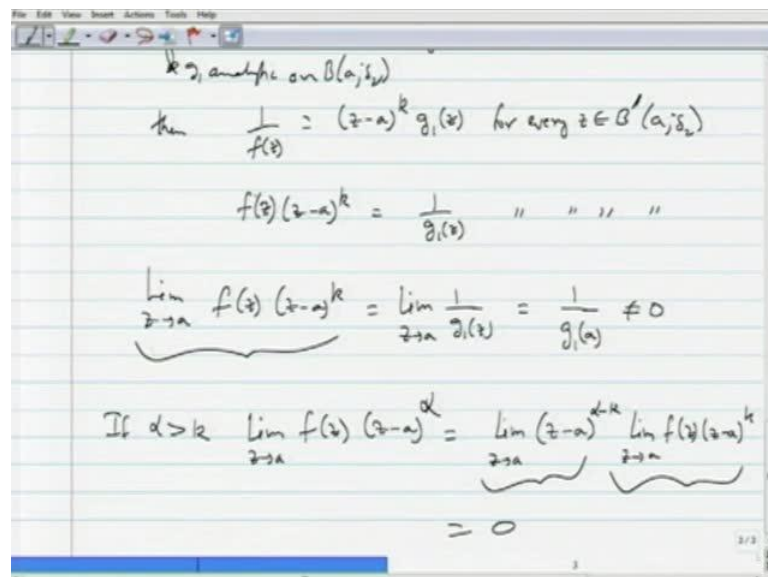 File Edit View Insert Actions Tools Help
& g₁ analytic on B(a; δ₂)
then 1/f(z) = (z-a)^k g₁(z) for every z ∈ B'(a; δ₂)
f(z) (z-a)^k = 1/g₁(z) " " " "
Lim z→a f(z) (z-a)^k = Lim z→a 1/g₁(z) = 1/g₁(a) ≠ 0
If α > k Lim z→a f(z) (z-a)^α = Lim z→a (z-a)^(α-k) Lim z→a f(z) (z-a)^k
= 0
3/3
3